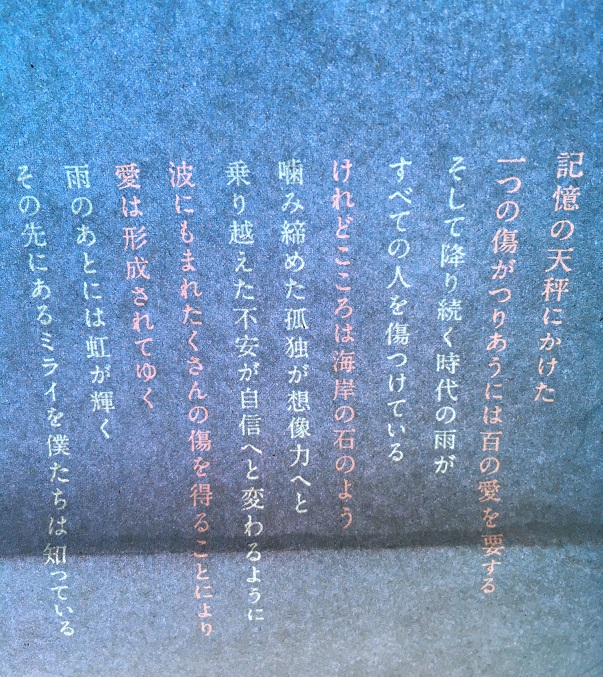 記憶の天秤にかけた
一つの傷がつりあうには百の愛を要する
そして降り続く時代の雨が
すべての人を傷つけている
けれどこころは海岸の石のよう
噛み締めた孤独が想像力へと
乗り越えた不安が自信へと変わるように
波にもまれたくさんの傷を得ることにより
愛は形成されてゆく
雨のあとには虹が輝く
その先にあるミライを僕たちは知っている